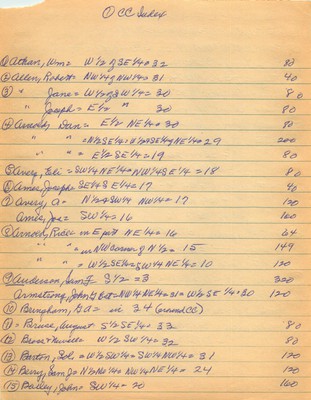 ① CC Index
① Athan, Wm = W½ of SE¼ = 32 80
② Allen, Robert = NW¼ of NW¼ = 31 40
③ " Jane = W½ of SW¼ = 30 80
" Joseph = E½ " 30 80
④ Arnold, Dan = E½ NE¼ = 30 80
" " = N½ SE¼ = NE¼ = 29 200
" " = E½ SE¼ = 19 80
⑤ Avery, Eli = SW¼ NE¼ = NW¼ SE¼ = 18 80
⑥ Ames, Joseph = SE¼ S¼ = 17 40
⑦ Avery, A = N½ SW¼ NW¼ = 17 120
Ames, Joe = SW¼ = 16 160
⑧ Arnold, in E part NE¼ = 16 64
" " = in NW corner of N½ = 15 149
" " = W½ SE¼ = SW¼ NE¼ = 10 120
⑨ Anderson, = S½ = 3 320
Armstrong, John G = NW¼ NE¼ = 31 = W½ SE¼ = 30 120
⑩ Bringham, = in 34 (around CC)
⑪ = August S½ SE¼ = 33 80
⑫ W½ SW¼ = 32 80
⑬ Barton, Sol = W½ SW¼ = SW¼ NW¼ = 31 120
⑭ Berry, Sam J = N½ NW¼ = NW¼ NE¼ = 24 120
⑮ Bailey, John = SW¼ = 20 160